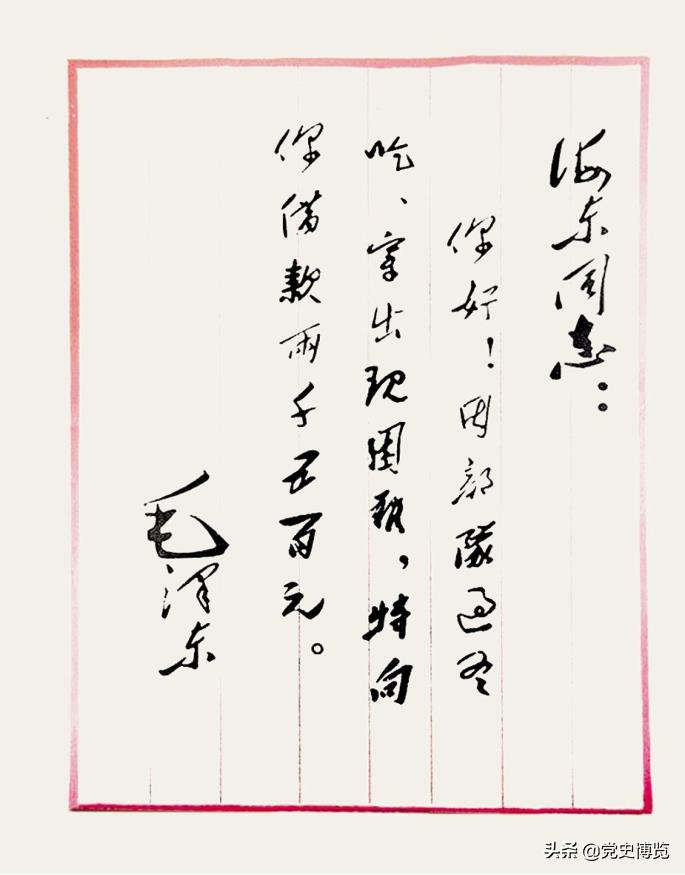 海东同志：
你好！因部隊过冬
吃、穿出现困难，特向
你借款兩千五百元。
毛泽东
头条 @党史博览